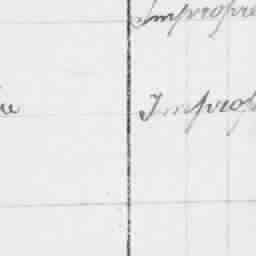 Impropre
Improp